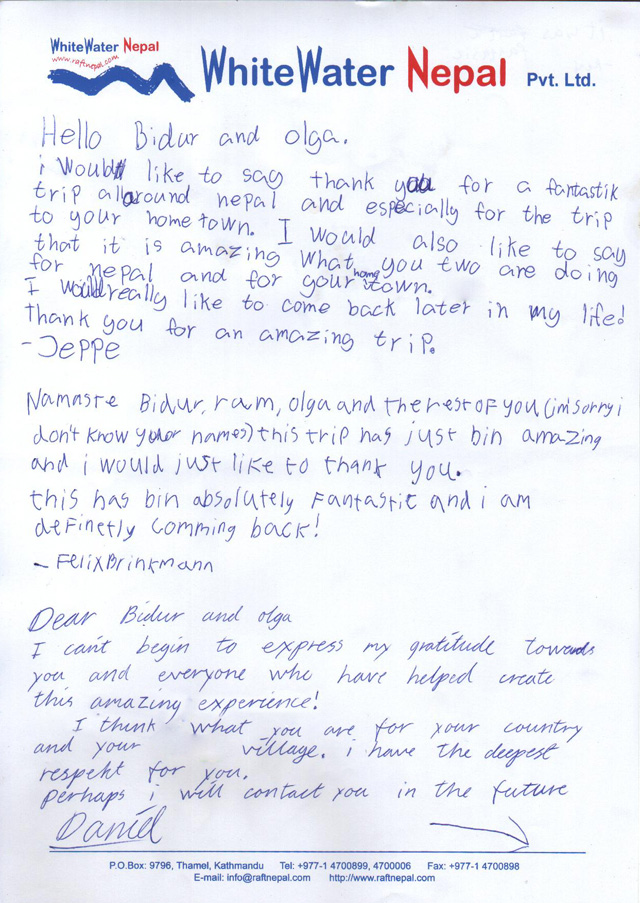 WhiteWater Nepal
www.raftnepal.com
WhiteWater Nepal Pvt. Ltd.
Hello Bidur and olga.
i would like to say thank you for a fantastik
trip allaround nepal and especially for the trip
to your hometown. I would also like to say
that it is amazing what you two are doing
for nepal and for your home town.
I would really like to come back later in my life!
Thank you for an amazing trip.
- Jeppe
Namaste Bidur, ram, olga and the rest of you (im sorry i
don't know your names) this trip has just bin amazing
and i would just like to thank you.
this has bin absolutely Fantastic and i am
definetly comming back!
- Felix Brinkmann
Dear Bidur and olga
I can't begin to express my gratitude towards
you and everyone who have helped create
this amazing experience!
I think what you are for your country
and your village. i have the deepest
respekt for you.
perhaps i will contact you in the future
Daniel
P.O.Box: 9796, Thamel, Kathmandu Tel: +977-1 4700899, 4700006 Fax: +977-1 4700898
E-mail: info@raftnepal.com http://www.raftnepal.com